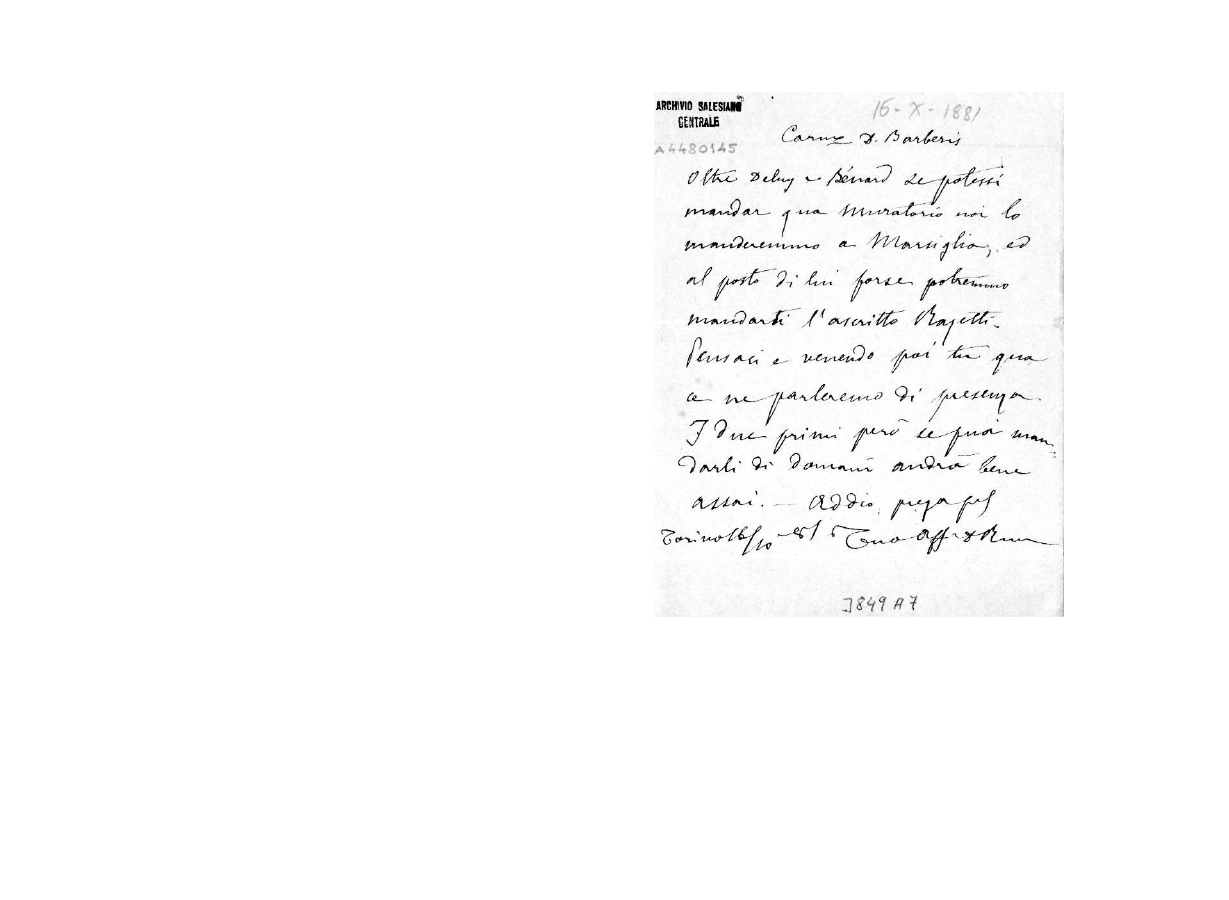 ARCHIVIO SALESIANO
CENTRALE
16-X-1881
A4480145
Carmo D. Barberis
Oltre Deluy e Bénard se potessi
mandar qua Muratorio noi lo
manderemmo a Marsiglia, ed
al posto di lui forse potremmo
mandarti l'ascritto Rajetti.
Pensaci e venendo poi tu qua
ce ne parleremo di presenza.
I due primi però se puoi man-
darli di domani andrà bene
assai. — Addio, prega pel
Torino 16/10 81 Tuo Aff. D Rua
J849 A7